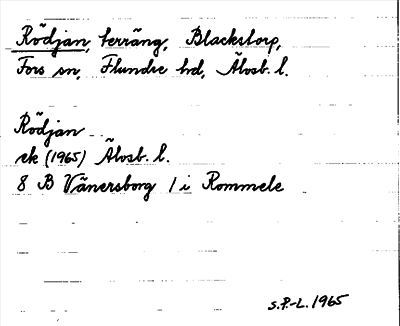 Rödjan, terräng, Blackstorp,
Fors sn, Flundre hd, Älvsb. l.
Rödjan
ek (1965) Älvsb. l.
8 B Vänersborg 1 i Rommele
S.P.-L. 1965